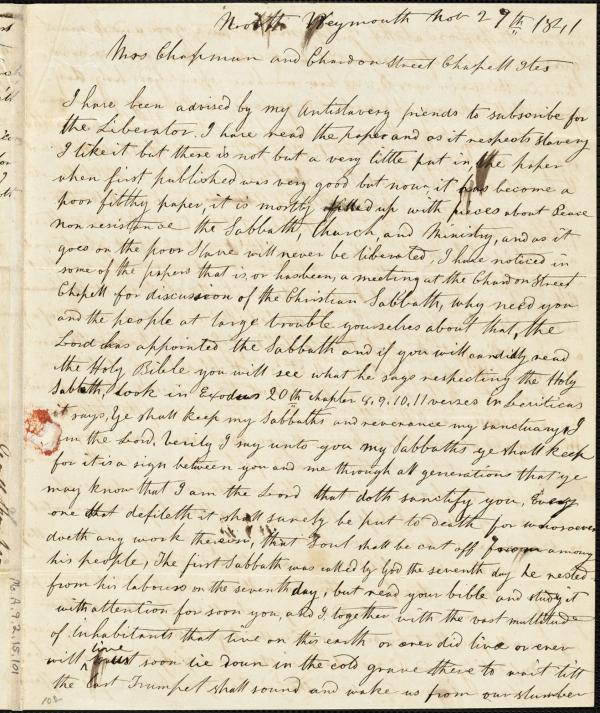 North Weymouth Nov 29th 1841
Mrs Chapman and Chardon Street Chapell &tes
I have been advised by my Antislavery friends to subscribe for
the Liberator. I have read the paper and as it respects slavery
I like it but there is not but a very little put in the paper
when first published was very good but now it has become a
poor filthy paper, it is mostly filled up with pieces about Peace
non resistance the Sabbath, Church, and Ministry, and as it
goes on the poor Slave will never be liberated, I have noticed in
some of the papers that is, or has been, a meeting at the Chardon Street
Chapell for discussion of the Christian Sabbath, why need you
and the people at large trouble yourselves about that, the
Lord has appointed the Sabbath and if you will candidly read
the Holy Bible you will see what he says respecting the Holy
Sabbath, look in Exodus 20th chapter 8, 9, 10, 11 verses in Leviticus
it says, Ye shall keep my Sabbaths and reverance my sanctuary, I
am the Lord, Verily I say unto you my Sabbaths ye shall keep
for it is a sign between you and me through all generations that ye
may know that I am the Lord that doth sanctify you, Every
one that defileth it shall surely be put to death for whosoever
doeth any work therein, that soul shall be cut off from among
his people, The first Sabbath was called by God the seventh day he rested
from his labours on the seventh day, but read your bible and study it
with attention for soon you, and I, together with the vast multitude
of inhabitants that live on this earth or ever did live or ever
will live must soon lie down in the cold grave there to wait till
the last Trumpet shall sound and wake us from our slumber
Ms A.9.2.15.101
102